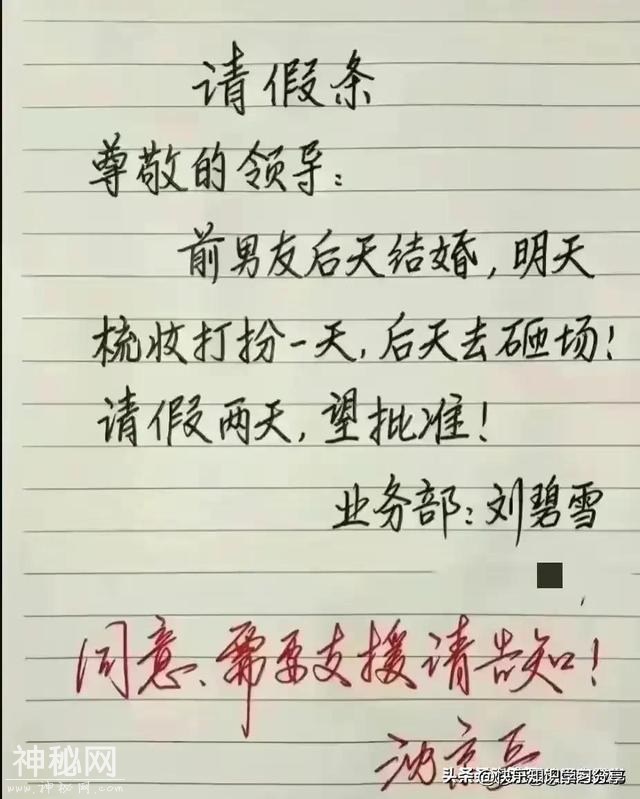 请假条
尊敬的领导:
前男友后天结婚,明天
梳妆打扮一天,后天去砸场!
请假两天,望批准!
业务部:刘碧雪
同意、需要支援请告知!
神秘网
www.shenmi.com.cn
头条@快乐知识学习分享